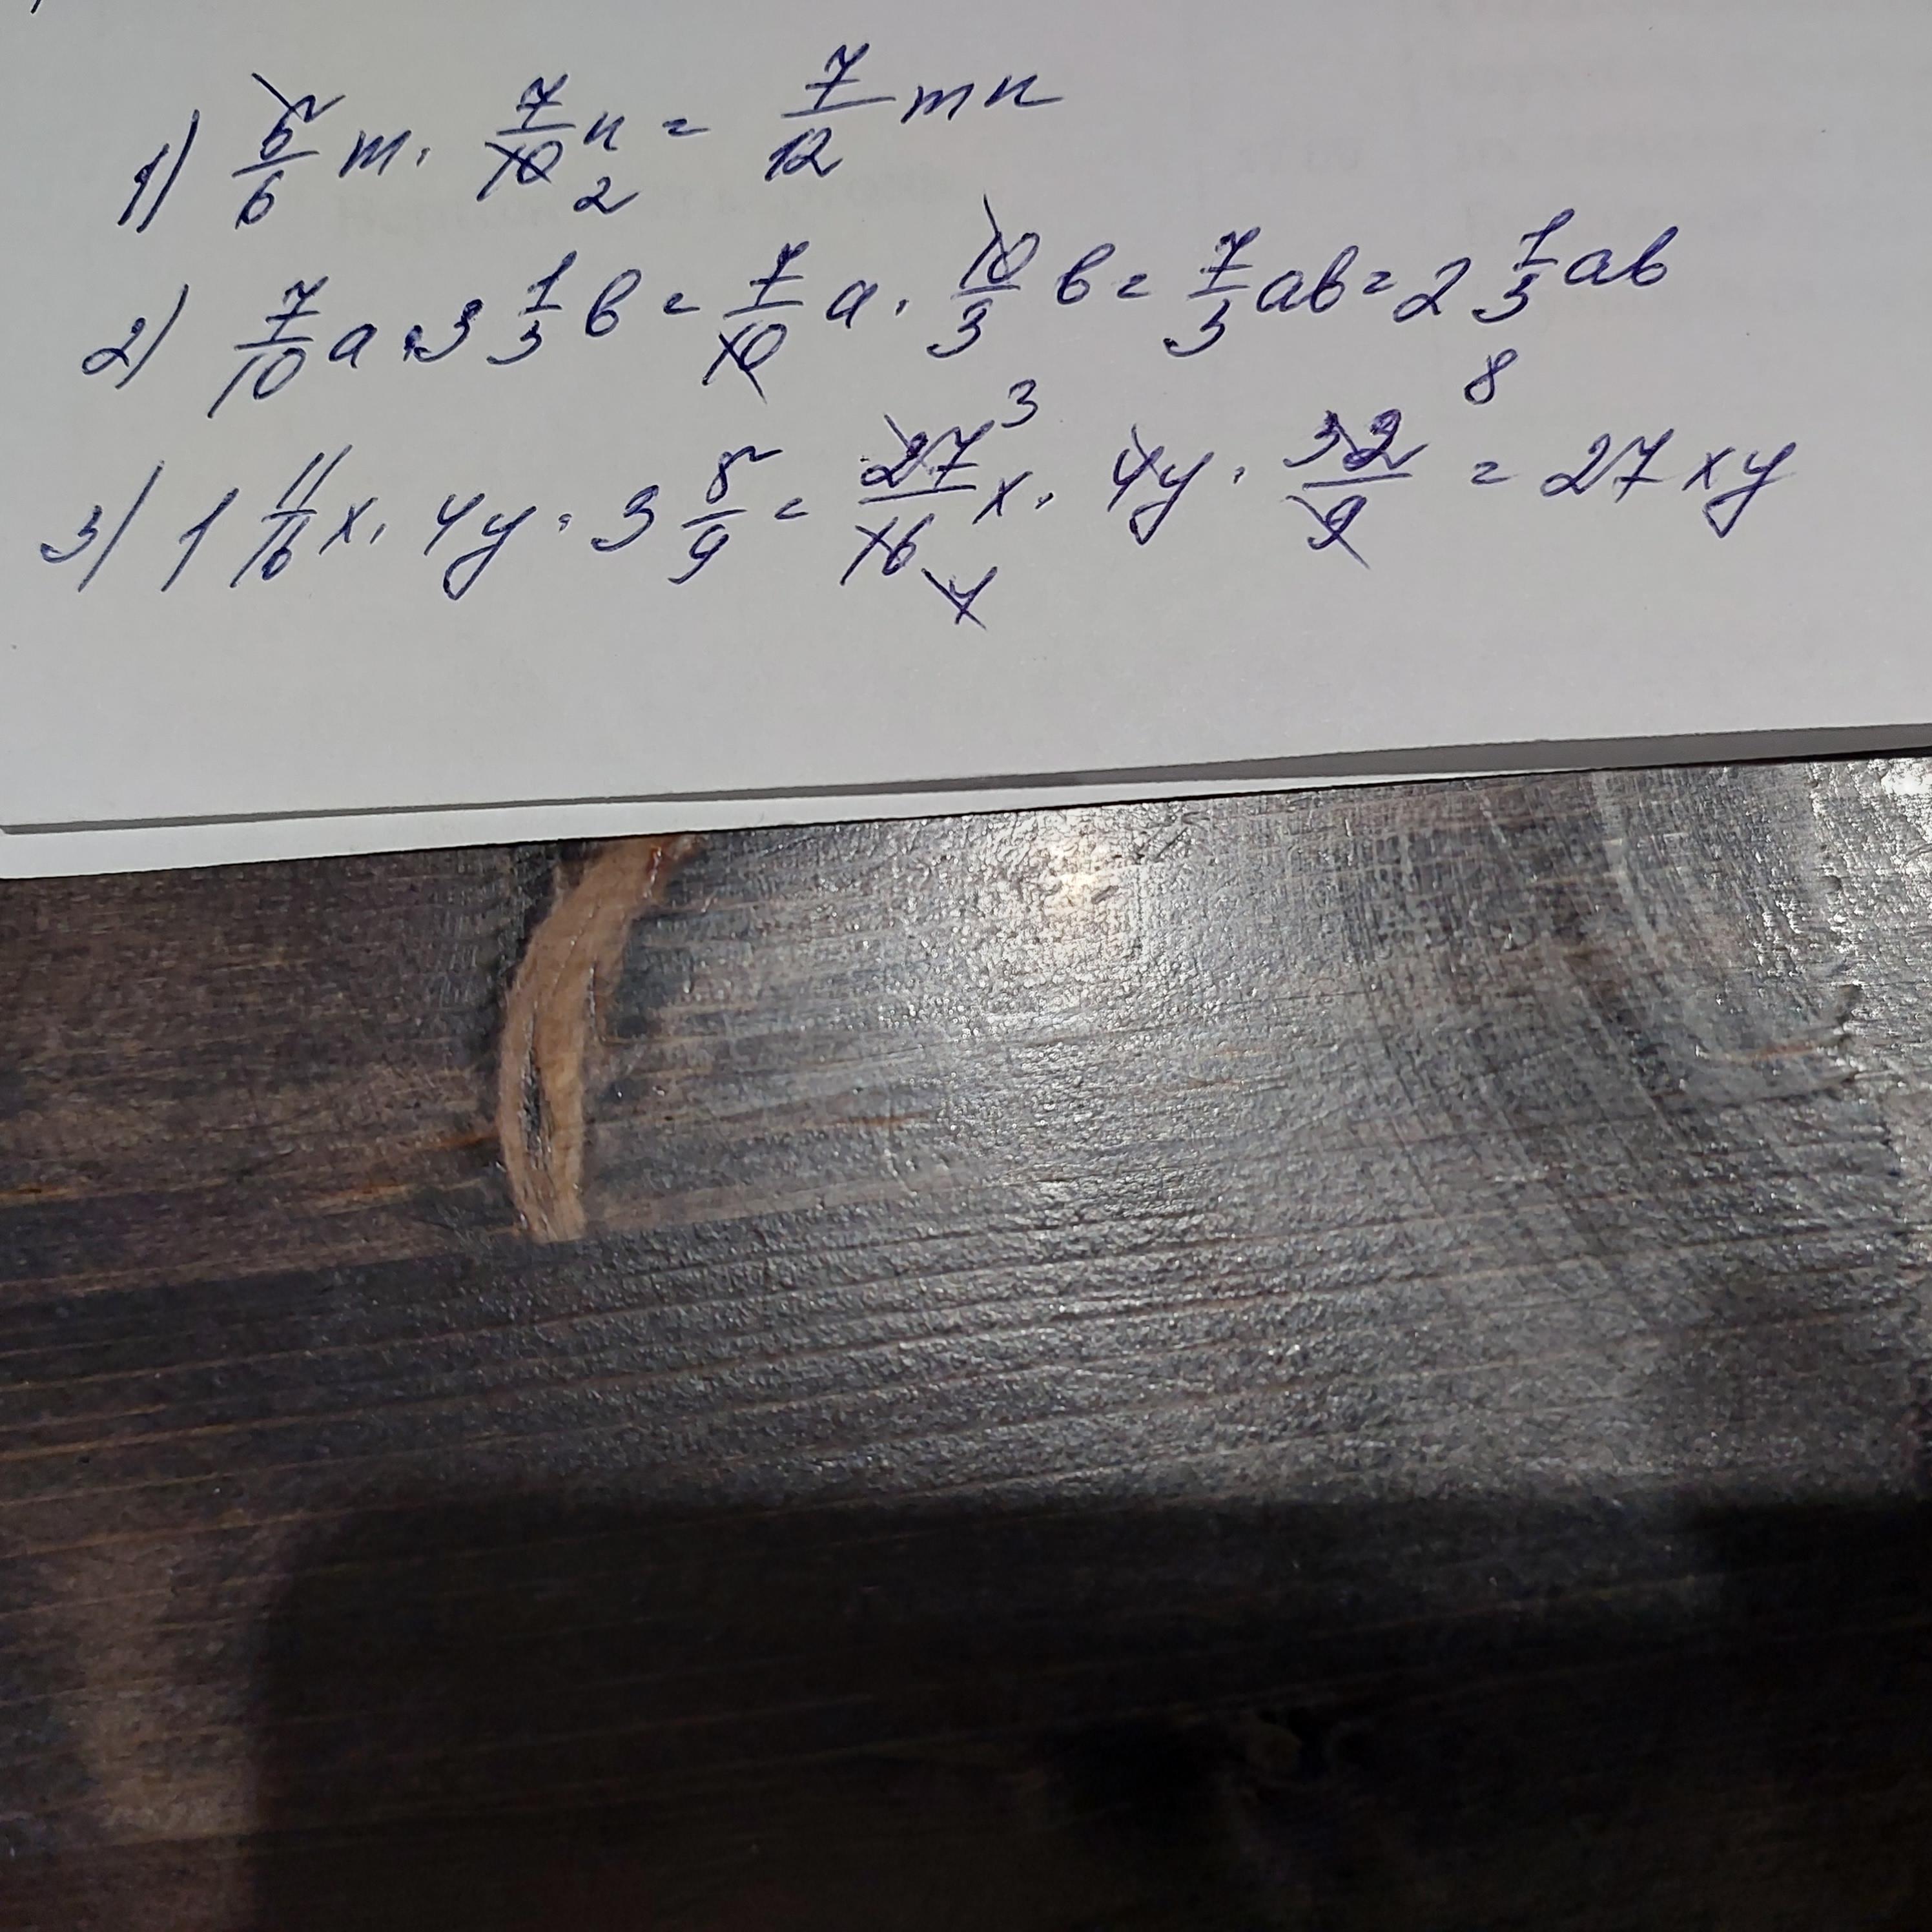 1) 5/6 m · 7/10 n = 7/12 mn
2
2) 7/10 a · 3 1/3 b = 7/10 a · 10/3 b = 7/3 ab = 2 1/3 ab
3 8
3) 1 11/16 x · 4y · 3 5/9 = 27/16 x · 4y · 32/9 = 27xy
4